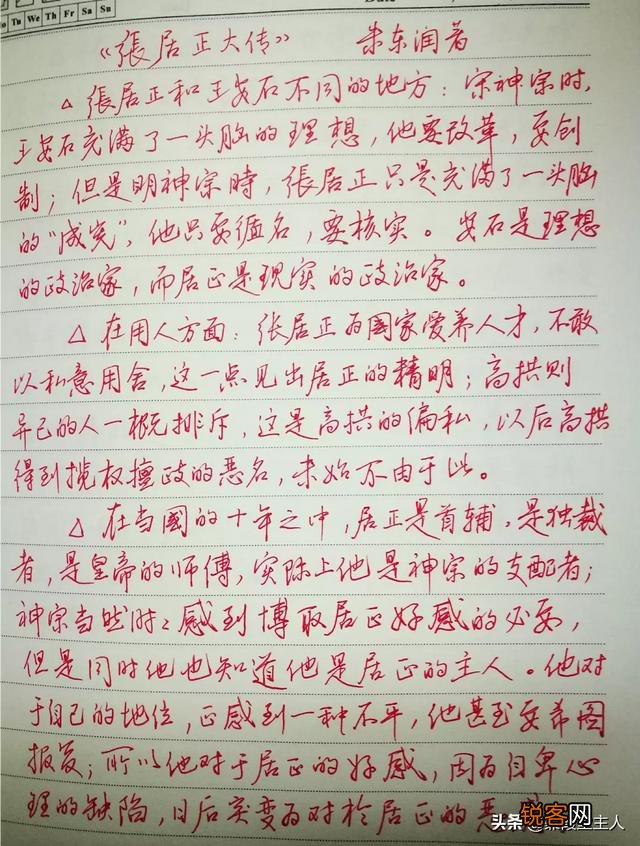 Mo Tu We Th Fr Sa Su
《張居正大传》 朱东润著
△ 張居正和王安石不同的地方：宗神宗时，
王安石充满了一头脑的理想，他要改革，要创
制；但是明神宗時，張居正只是充满了一头脑
的“成宪”，他只要循名，要核实。安石是理想
的政治家，而居正是现实的政治家。
△ 在用人方面：张居正为國家爱养人才，不敢
以私意用舍，这一点见出居正的精明；高拱则
异己的人一概排斥，这是高拱的偏私，以后高拱
得到揽权擅政的恶名，未始不由于此。
△ 在当國的十年之中，居正是首辅，是独裁
者，是皇帝的师傅，实际上他是神宗的支配者；
神宗当然时々感到博取居正好感的必要，
但是同时他也知道他是居正的主人。他对
于自己的地位，正感到一种不平，他甚至要希图
报复；所以他对于居正的好感，因为自卑心
理的缺陷，日后突变为对於居正的恶
头条 主人
锐客网